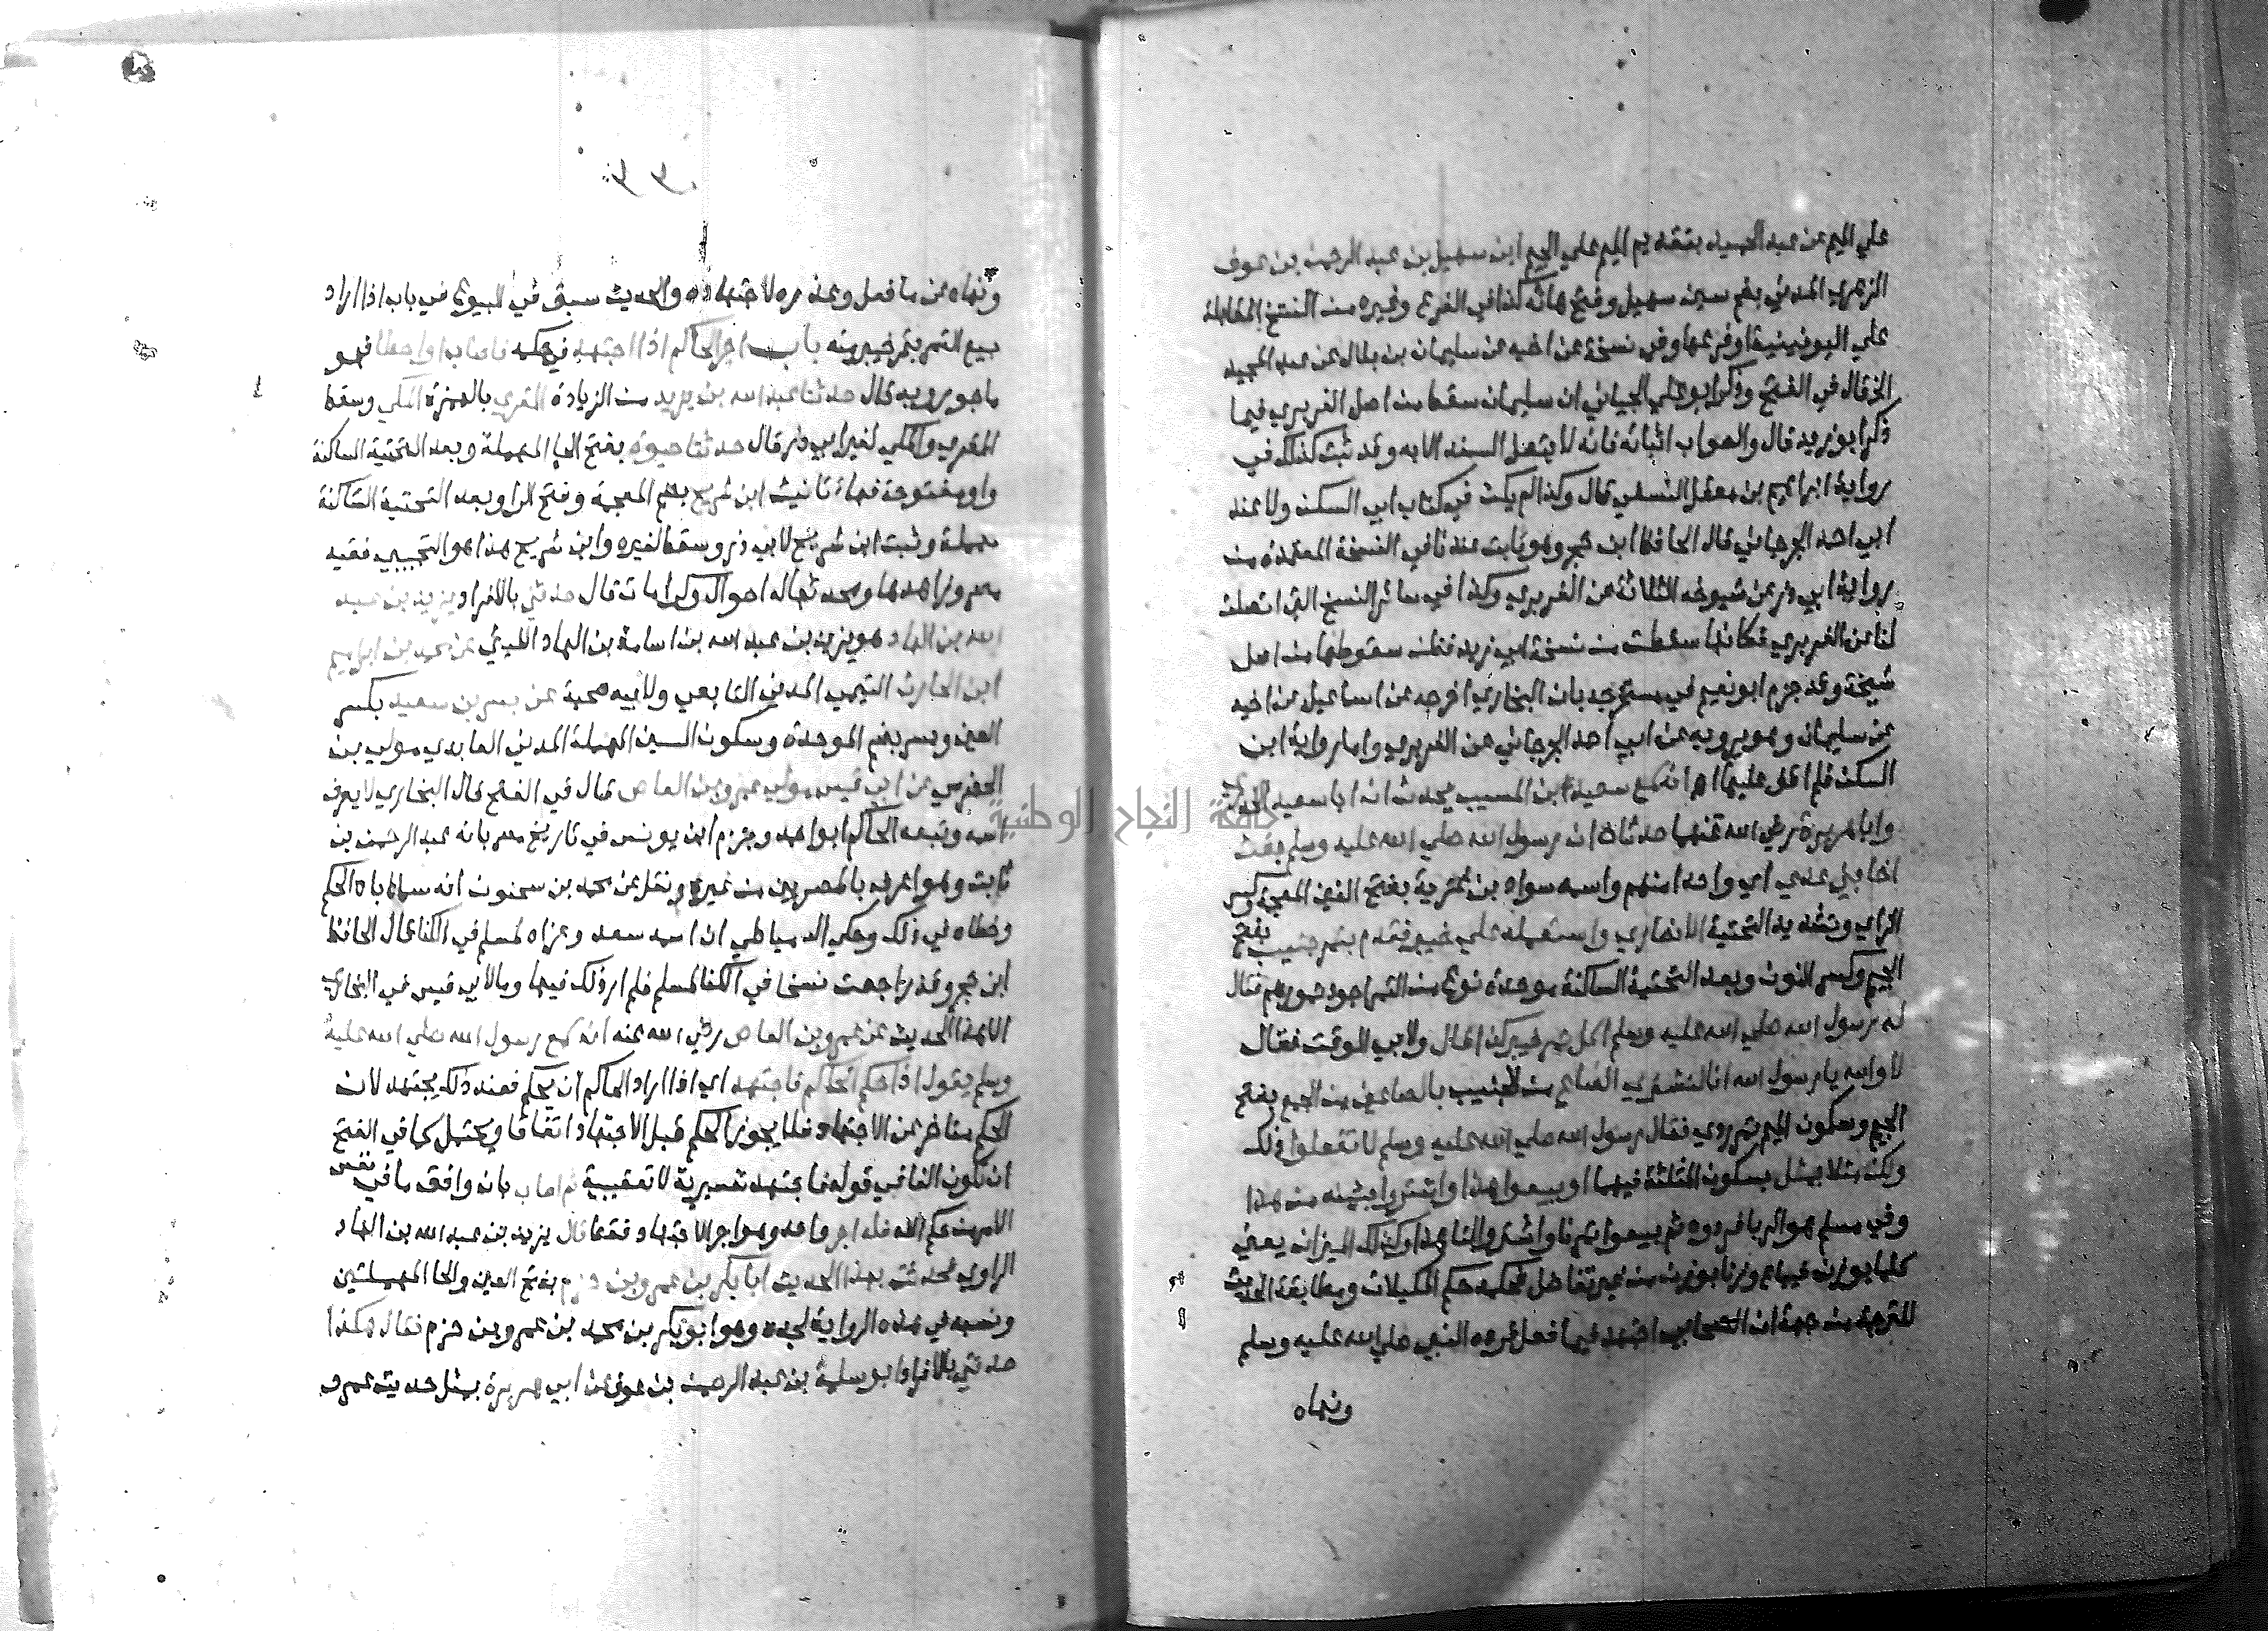 علي الميم عن عبد الحميد بتقديم الميم علي الجيم ابن سهيل بن عبد الرحمن بن عوف
الزهري المدني بضم سين سهيل وفتح هائه كذا في الفرع وغيره من النسخ المقابلة
علي اليونينية وفرعها وفي نسخة عن اخيه عن سليمان بن بلال عن عبد المجيد
الخ قال في الفتح وذكر ابو علي الجياني ان سليمان سقط من اصل الفربري فيما
ذكر ابو زيد قال والصواب اثباته فانه لا يتصل السند الا به وقد ثبت كذلك في
رواية ابراهيم بن معقل النسفي قال وكذا لم يكن في كتاب ابي السكن ولا عند
ابي احمد الجرجاني قال الحافظ ابن حجر وهو ثابت عندنا في النسخة المعتمدة من
رواية ابي ذر عن شيوخه الثلاثة عن الفربري وكذا في سائر النسخ التي اتصلت
لنا عن الفربري فكانها سقطت من نسخة ابي زيد فظن سقوطها من اصل
شيخه وقد جزم ابو نعيم في مستخرجه بان البخاري اخرجه عن اسماعيل عن اخيه
عن سليمان وهو يرويه عن ابي احمد الجرجاني عن الفربري واما رواية ابن
السكن فلم اقف عليها اه انه سمع سعيد بن المسيب يحدث ان ابا سعيد الخدري
وابا هريرة رضي الله عنهما حدثاه ان رسول الله صلي الله عليه وسلم بعث
اخا بني عدي اي واحدا منهم واسمه سواد بن غزية بفتح الغين المعجمة وكسر
الزاي وتشديد التحتية الانصاري واستعمله علي خيبر فقدم بتمر جنيب بفتح
الجيم وكسر النون وبعد التحتية الساكنة موحدة نوع من التمر اجود تمورهم فقال
له رسول الله صلي الله عليه وسلم اكل تمر خيبر كذا قال ولابي الوقت فقال
لا والله يا رسول الله انا لنشتري الصاع من الجنيب بالصاعين من الجمع بفتح
الجيم وسكون الميم تمر ردي فقال رسول الله صلي الله عليه وسلم لا تفعلوا ذلك
ولكن مثلا بمثل بسكون المثلثة فيهما او بيعوا هذا واشتروا بثمنه من هذا
وفي مسلم هو الربا فردوه ثم بيعوا تمرنا واشتروا لنا هذا وكذلك الميزان يعني
كلما يوزن فيباع وزنا بوزن من غير تفاضل فحكمه حكم المكيلات ومطابقة الحديث
للترجمة من جهة ان الصحابي اجتهد فيما فعل فرده النبي صلي الله عليه وسلم
ونهاه
ونهاه عن ما فعل وعذره لاجتهاده والحديث سبق في البيوع في باب اذا اراد
بيع التمر بتمر خير منه باب اجر الحاكم اذا اجتهد في حكمه فاصاب او اخطا فهو
ماجور وبه قال حدثنا عبد الله بن يزيد من الزيادة المقري بالهمزة المكي وسقط
المقري والمكي لغير ابي ذر قال حدثنا حيوة بفتح الحا المهملة وبعد التحتية الساكنة
واو مفتوحة فهاء تانيث ابن شريح بضم المعجمة وفتح الرا وبعد التحتية الساكنة
مهملة وثبت ابن شريح لابي ذر وسقط لغيره وابن شريح هذا هو التجيبي فقيه
مصر وزاهدها ومحدثها له احوال وكرامات قال حدثني بالافراد يزيد بن عبد
الله بن الهاد هو يزيد بن عبد الله بن اسامة بن الهاد الليثي عن محمد بن ابراهيم
ابن الحارث التيمي المدني التابعي ولابيه صحبة عن بسر بن سعيد بكسر
العين وبسر بضم الموحدة وسكون السين المهملة المدني العابدي مولي بن
الحضرمي عن ابي قيس مولي عمرو بن العاص قال في الفتح قال البخاري لا يعرف
اسمه وتبعه الحاكم ابو احمد وجزم ابن يونس في تاريخ مصر بانه عبد الرحمن بن
ثابت وهو اعرف بالمصريين من غيره ونقل عن محمد بن سحنون انه سمي اباه الحكم
وخطاه في ذلك وحكي الدمياطي ان اسمه سعد وعزاه لمسلم في الكنا قال الحافظ
ابن حجر وقد راجعت نسخا في الكنا لمسلم فلم ار ذلك فيها وما لابي قيس في البخاري
الا هذا الحديث عن عمرو بن العاص رضي الله عنه انه سمع رسول الله صلي الله عليه
وسلم يقول اذا حكم الحاكم فاجتهد اي اذا اراد الحاكم ان يحكم فعند ذلك يجتهد لان
الحكم متاخر عن الاجتهاد فلا يجوز الحكم قبل الاجتهاد اتفاقا ويحتمل كما في الفتح
ان تكون الفا في قوله فاجتهد تفسيرية لا تعقيبية ثم اصاب بان وافق ما في نفس
الامر من حكم الله فله اجر واحد وهو اجر الاجتهاد فقط قال يزيد بن عبد الله بن الهاد
الراوي فحدثت بهذا الحديث ابا بكر بن عمرو بن حزم بفتح العين والحا المهملتين
ونسبه في هذه الرواية لجده وهو ابو بكر بن محمد بن عمرو بن حزم فقال هكذا
حدثني بالافراد ابو سلمة بن عبد الرحمن بن عوف عن ابي هريرة بمثل حديث عمرو
جامعة النجاح الوطنية